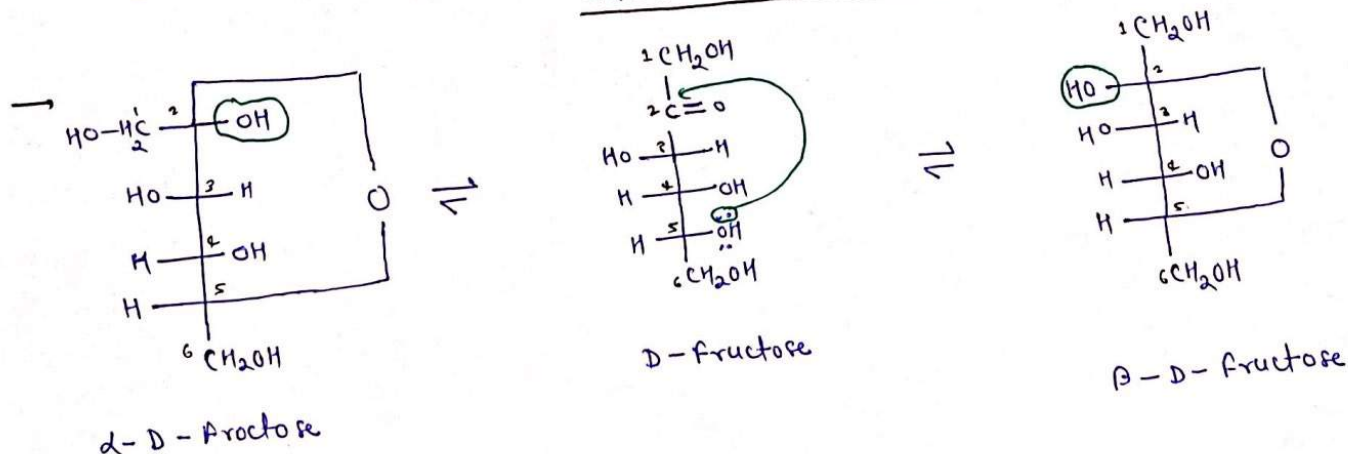 HO-H₂C¹ 2 OH
HO 3 H
H 4 OH
H 5
O
6 CH₂OH
α-D-Aroctose
⇌
1 CH₂OH
2 C=O
HO 3 H
H 4 OH
H 5 OH
6 CH₂OH
D-fructose
⇌
1 CH₂OH
HO 2
HO 3 H
H 4 OH
H 5
O
6 CH₂OH
β-D-fructose